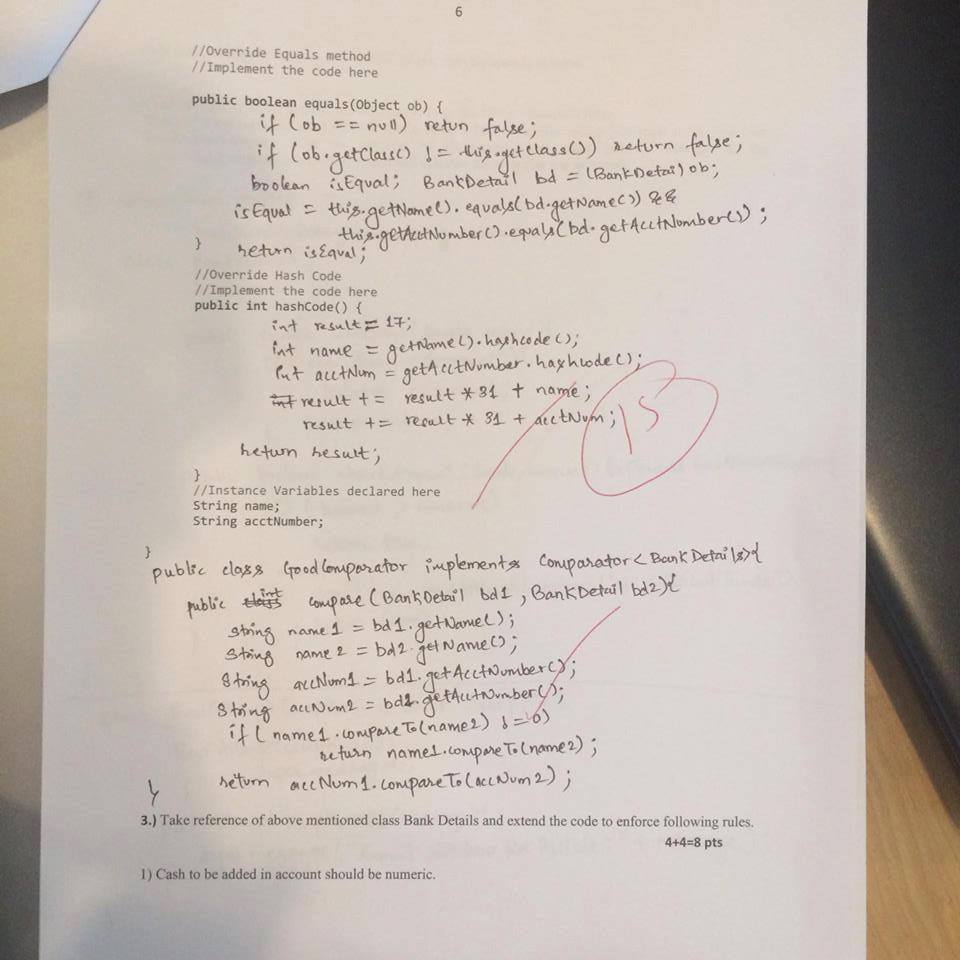 6
//Override Equals method
//Implement the code here
public boolean equals(Object ob) {
if (ob == null) retun false;
if (ob.getClass() != this.getClass()) return false;
boolean isEqual; BankDetail bd = (BankDetai) ob;
isEqual = this.getName().equals(bd.getName()) &&
this.getAcctNumber().equals(bd.getAcctNumber());
}
return isEqual;
//Override Hash Code
//Implement the code here
public int hashCode() {
int result = 17;
int name = getName().hashcode();
int acctNum = getAcctNumber.hashcode();
int result += result * 31 + name;
result += result * 31 + acctNum;
15
return result;
}
//Instance Variables declared here
String name;
String acctNumber;
}
public class GoodComparator implements Comparator<BankDetails>{
public class int compare (BankDetail bd1, BankDetail bd2){
String name1 = bd1.getName();
String name2 = bd2.getName();
String accNum1 = bd1.getAcctNumber();
String accNum2 = bd2.getAcctNumber();
if (name1.compareTo(name2) != 0)
return name1.compareTo(name2);
return accNum1.compareTo(accNum2);
}
3.) Take reference of above mentioned class Bank Details and extend the code to enforce following rules.
4+4=8 pts
1) Cash to be added in account should be numeric.